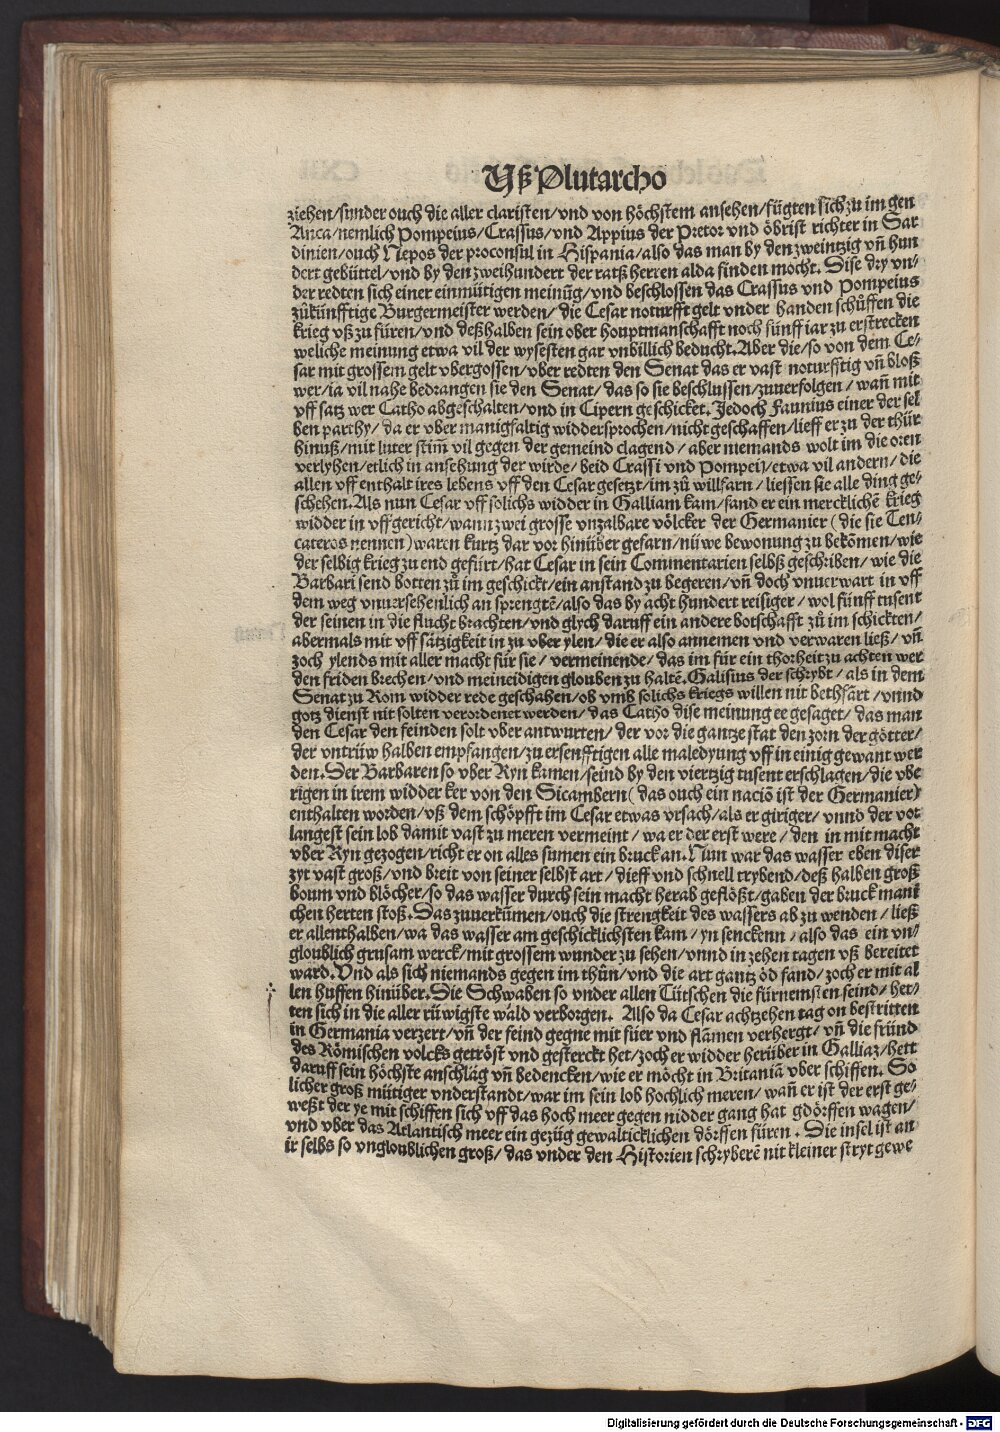 Uß Plutarcho
ziehen/sunder ouch die aller claristen/vnd von höchstem ansehen/fügten sich zu im gen
Anca/nemlich Pompeius/Crassus/vnd Appius der Pretor vnd öbrist richter in Sar
dinien/ouch Nepos der proconsul in Hispania/also das man by den zweintzig vñ hun
dert gebüttel/vnd by den zweihundert der ratß herren alda finden mocht. Dise dry vn⸗
der redten sich einer einmütigen meinũg/vnd beschlossen das Crassus vnd Pompeius
zůkünfftige Burgermeister werden/ die Cesar noturfft gelt vnder handen schüffen die
krieg vß zu füren/vnd deßhalben sein ober houptmanschafft noch fünff iar zu erstrecken
weliche meinung etwa vil der wysesten gar vnbillich beducht. Aber die/so von dem Ce⸗
sar mit grossem gelt vbergossen/vber redten den Senat das er vast noturfftig vñ bloß
wer/ia vil nahe bedrangen sie den Senat/das so sie beschlussen/zuuerfolgen/wañ mit
vff satz wer Catho abgeschalten/vnd in Cipern geschicket. Jedoch Faunius einer der sel
ben parthy/da er vber manigfaltig widdersprochen/nicht geschaffen/lieff er zu der thür
hinuß/mit luter stim̃ vil gegen der gemeind clagend/aber niemands wolt im die oren
verlyhen/etlich in ansehung der wirde/beid Crassi vnd Pompeij/etwa vil andern/die
allen vff enthalt ires lebens vff den Cesar gesetzt/im zů willfarn/liessen sie alle ding ge⸗
schehen. Als nun Cesar vff solichs widder in Galliam kam/fand er ein mercklichẽ krieg
widder in vff gericht/wann zwei grosse vnzalbare völcker der Germanier (die sie Ten⸗
cateros nennen) waren kurtz dar vor hinüber gefarn/nüwe bewonung zu bekõmen/wie
der selbig krieg zu end gefürt/hat Cesar in sein Commentarien selbß geschriben/wie die
Barbari send botten zů im geschickt/ein anstand zu begeren/vñ doch vnuerwart in vff
dem weg vnuersehenlich an sprengtẽ/also das by acht hundert reisiger/wol fünff tusent
der seinen in die flucht brachten/vnd glych daruff ein andere botschafft zů im schickten/
abermals mit vff sätzigkeit in zu vber ylen/die er also annemen vnd verwaren ließ/vñ
zoch ylends mit aller macht für sie/vermeinende/das im für ein thorheit zu achten wer
den friden brechen/vnd meineidigen glouben zu haltẽ. Galisius der schrybt/als in dem
Senat zu Rom widder rede geschahen/ob vmb solichs kriegs willen nit bethfart/vnnd
gotz dienst nit solten verordenet werden/das Catho dise meinung ee gesaget/das man
den Cesar den feinden solt vber antwurten/der vor die gantze stat den zorn der götter/
der vntrüw halben empfangen/zu ersenfftigen alle maledyung vff in einig gewant wer
den. Der Barbaren so vber Ryn kamen/seind by den viertzig tusent erschlagen/die vbe
rigen in irem widder ker von den Sicambern (das ouch ein naciõ ist der Germanier)
enthalten worden/vß dem schöpfft im Cesar etwas vrsach/als er giriger/vnnd der vor
langest sein lob damit vast zu meren vermeint/wa er der erst were/den in mit macht
vber Ryn gezogen/richt er on alles sumen ein bruck an. Nun war das wasser eben diser
zyt vast groß/vnd breit von seiner selbst art/dieff vnd schnell trybend/deß halben groß
boum vnd blöcher/so das wasser durch sein macht herab geflößt/gaben der bruck mani
chen herten stoß. Das zuuerkũmen/ouch die strengkeit des wassers ab zu wenden/ließ
er allenthalben/wa das wasser am geschicklichsten kam/yn senckenn/also das ein vn⸗
gloublich grusam werck/mit grossem wunder zu sehen/vnnd in zehen tagen vß bereitet
ward. Vnd als sich niemands gegen im thůn/vnd die art gantz öd fand/zoch er mit al
len huffen hinüber. Die Schwaben so vnder allen Tütschen die fürnemsten seind/het⸗
ten sich in die aller rüwigste wäld verborgen. Also da Cesar achtzehen tag on bestritten
in Germania verzert/vñ der feind gegne mit füer vnd flãmen verhergt/vñ die fründ
des Römischen volcks getröst vnd gesterckt het/zoch er widder herüber in Galliaz/hett
daruff sein höchste anschlag vñ bedencken/wie er möcht in Britaniã vber schiffen. So
licher groß mütiger vnderstandt/war im sein lob hochlich meren/wañ er ist der erst ge⸗
weßt der ye mit schiffen sich vff das hoch meer gegen nidder gang hat gdörffen wagen/
vnd vber das Atlantisch meer ein gezüg gewaltigklichen dörffen füren. Die insel ist an
ir selbs so vngloublichen groß/das vnder den Historien schryberẽ nit kleiner stryt gewe
Digitalisierung gefördert durch die Deutsche Forschungsgemeinschaft - DFG